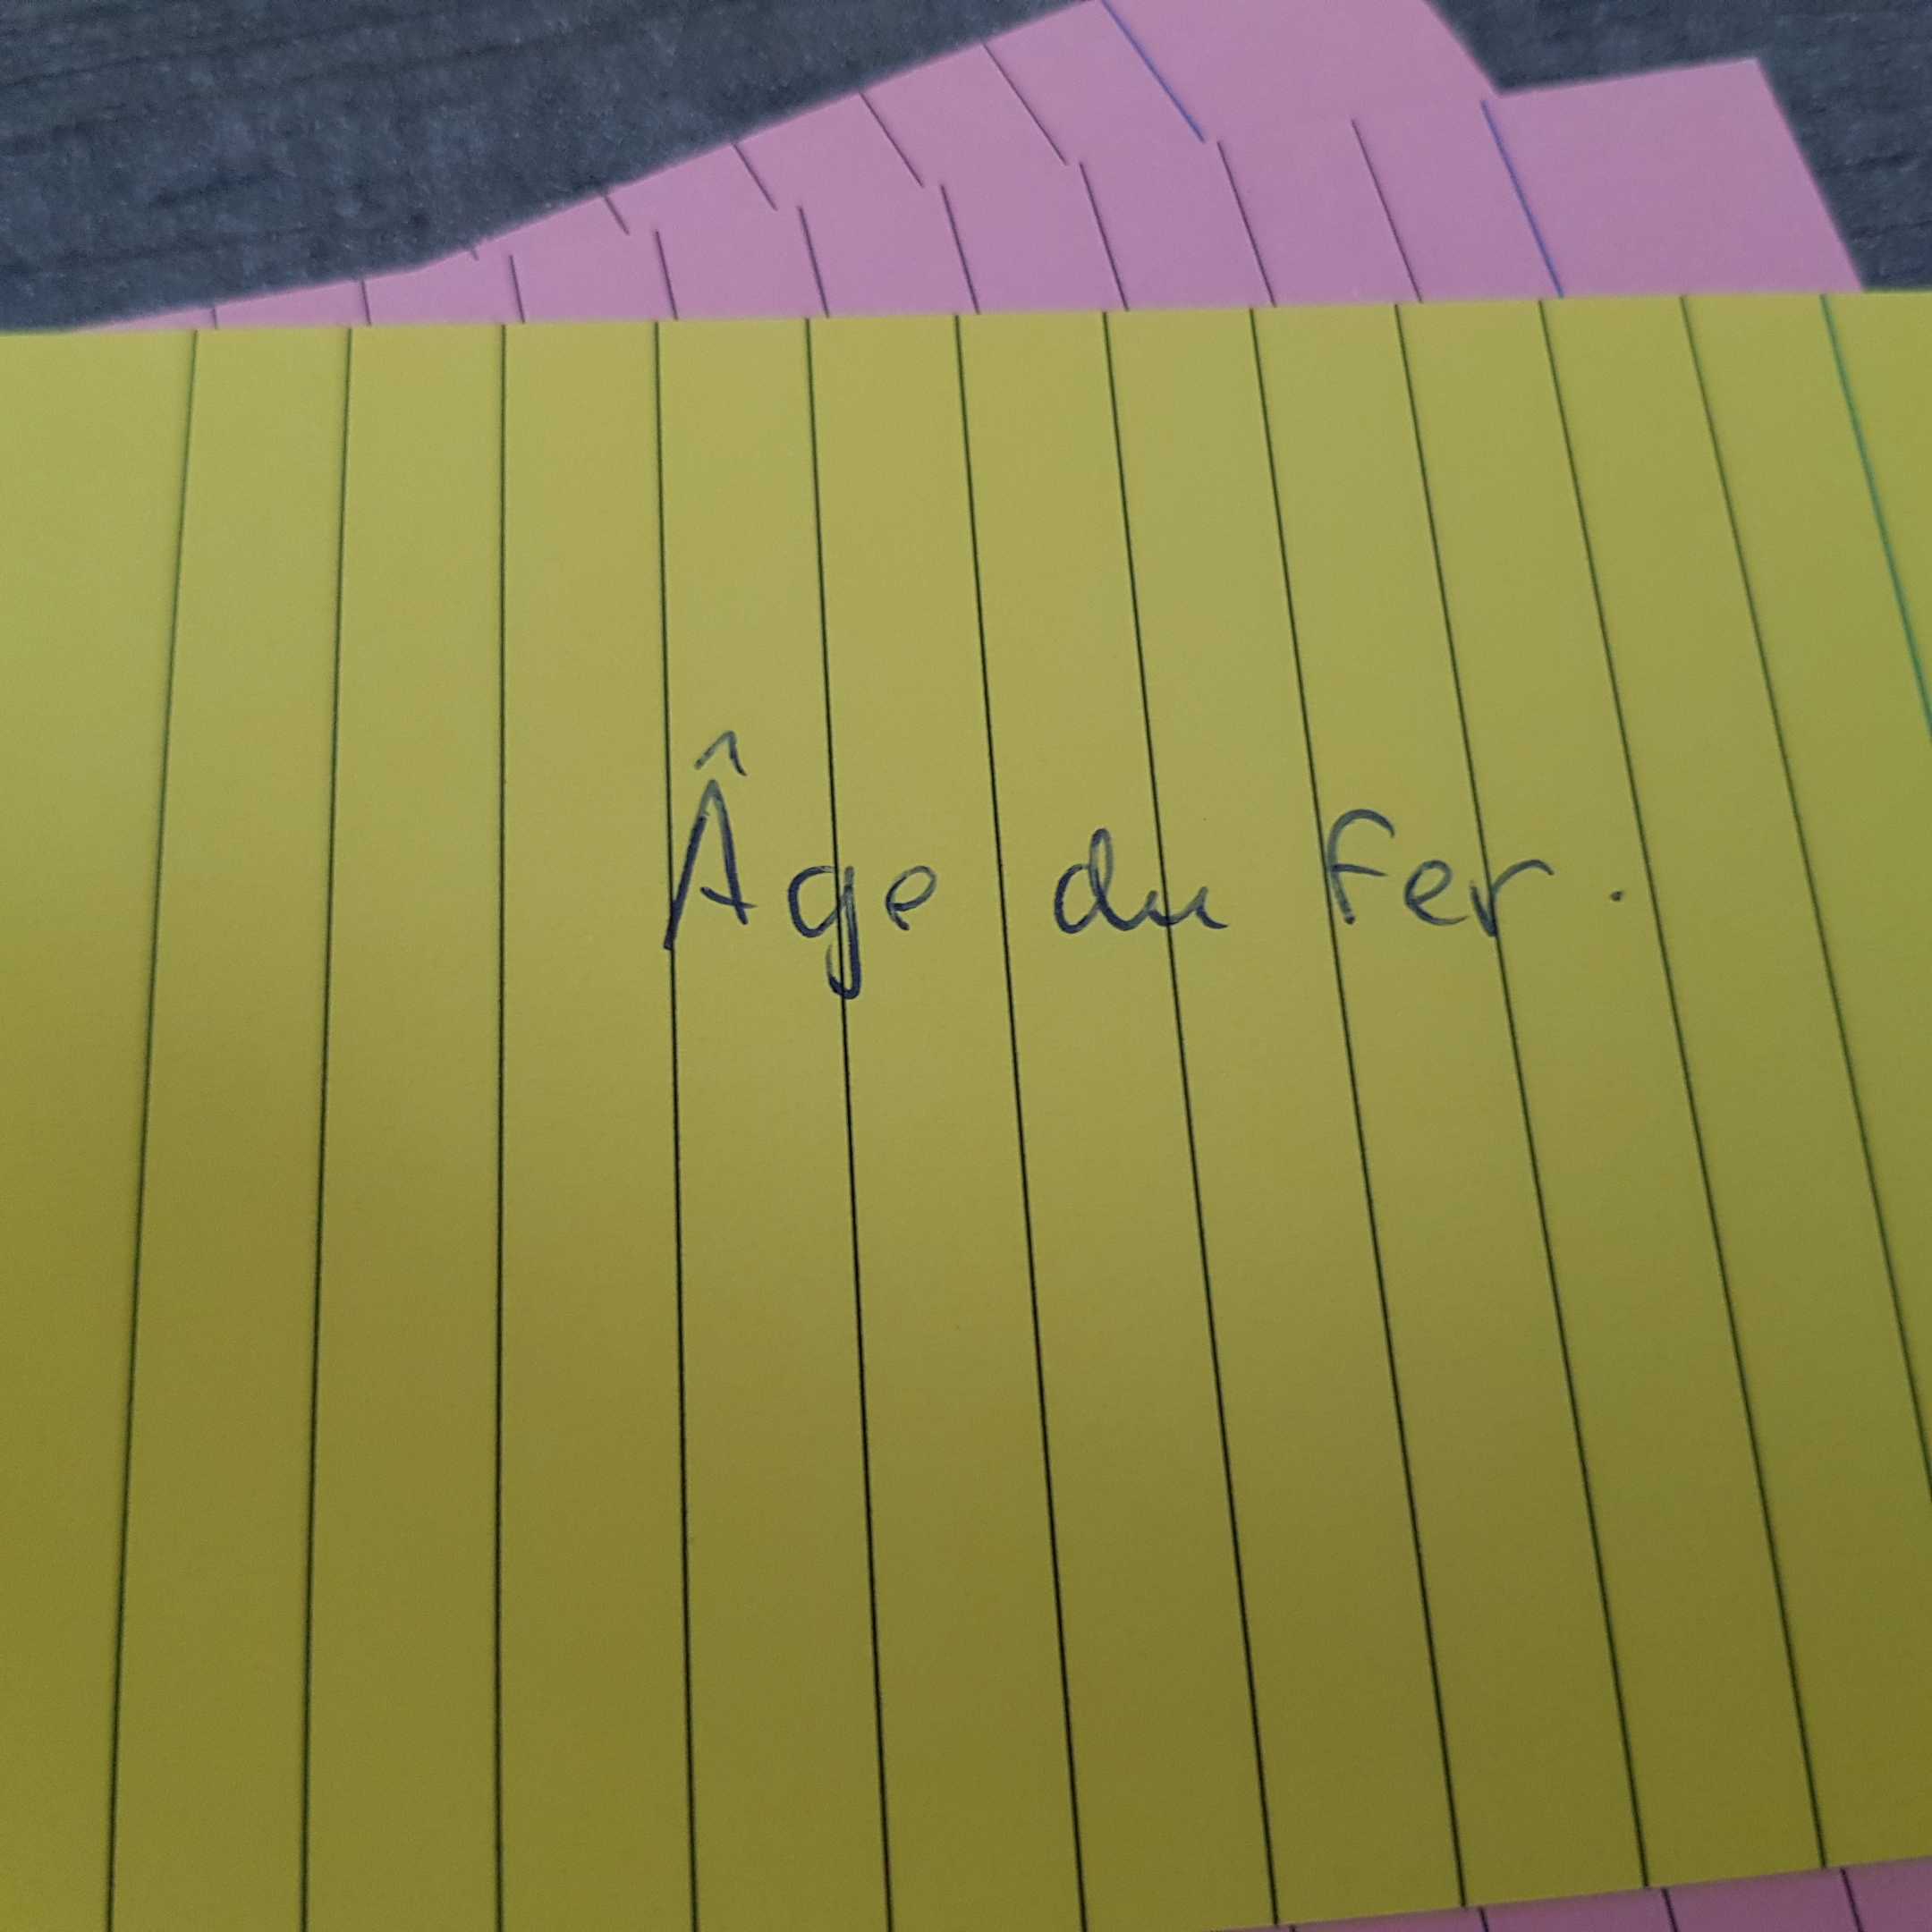 Âge du fer.